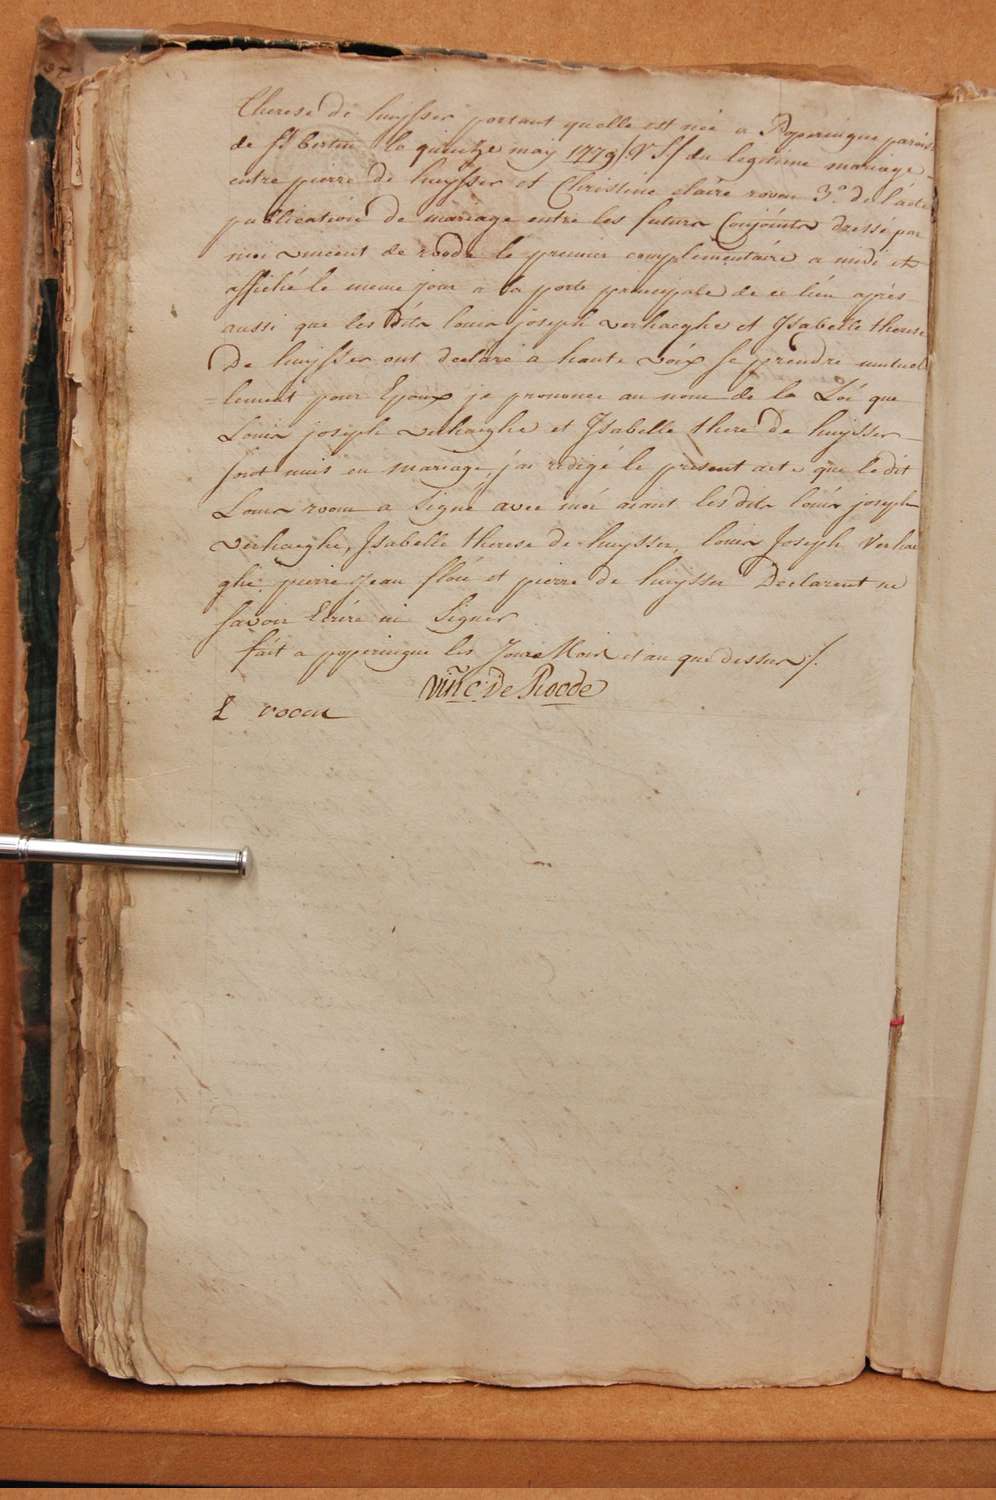 Therese de huÿsser portant quelle est née a Poperingue parois
de St bertin le quinze maÿ 1779 (V.S) du legitime mariage
entre pierre de huÿsser et Christine claire rovau 3.° de l'acte
publication de mariage entre les futurs Conjoints dressé par
moi vincent de roode le premier complementaire a midi et
affiché le meme jour a la porte principale de ce lieu après
aussi que les dits louis joseph verhaeghe et Isabelle therese
de huÿsser ont declaré a haute voix se prendre mutuel
=lement pour Epoux je prononce au nom de la Loi que
Louis joseph verhaeghe et Isabelle there de huÿsser
sont unis en mariage, j'ai redigé le present acte que le dit
Louis roou a signé avec moi aiant les dits louis joseph
verhaeghe, Isabelle therese de huÿsser, louis Joseph Verhae
ghe, pierre jean floui et pierre de huÿsser Declarent ne
savoir Ecrire ni Signer
fait a poperingue les Jour Mois et an que dessus ./.
Vinc: De Roode
L roou